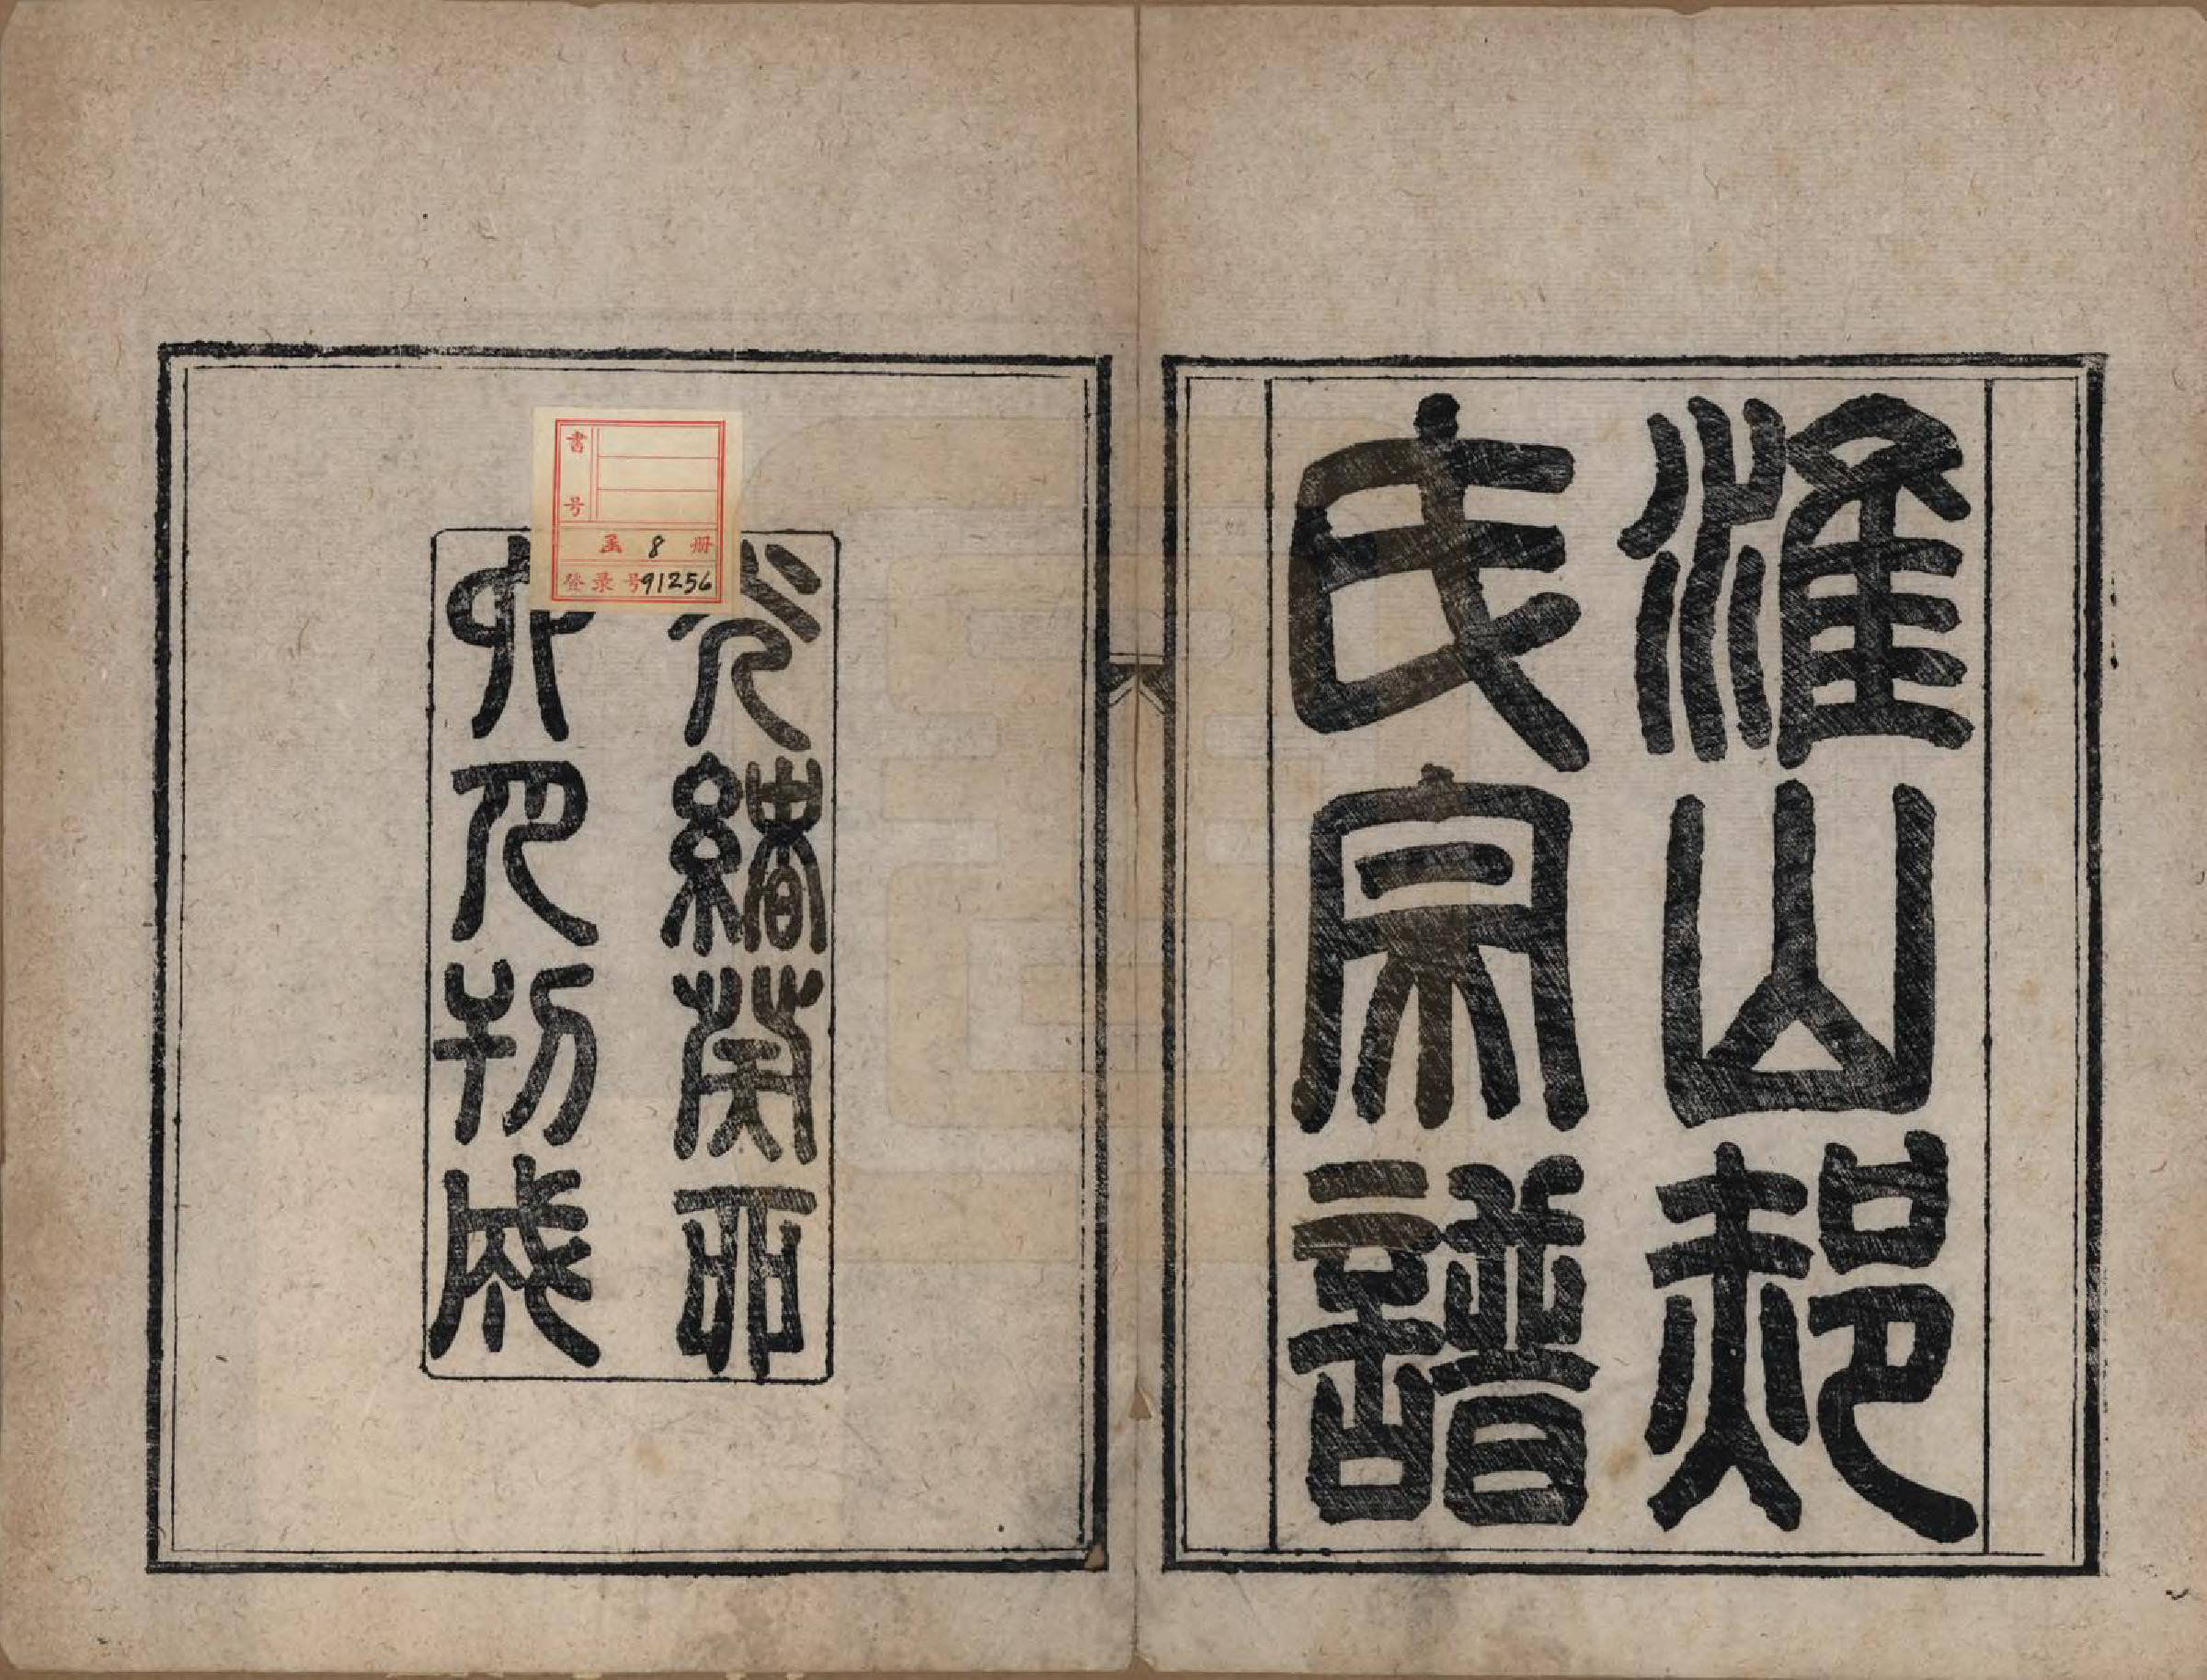 淮山郝
氏宗譜
光緒癸卯
六月刊成
書号
函 8 册
登录号 91256